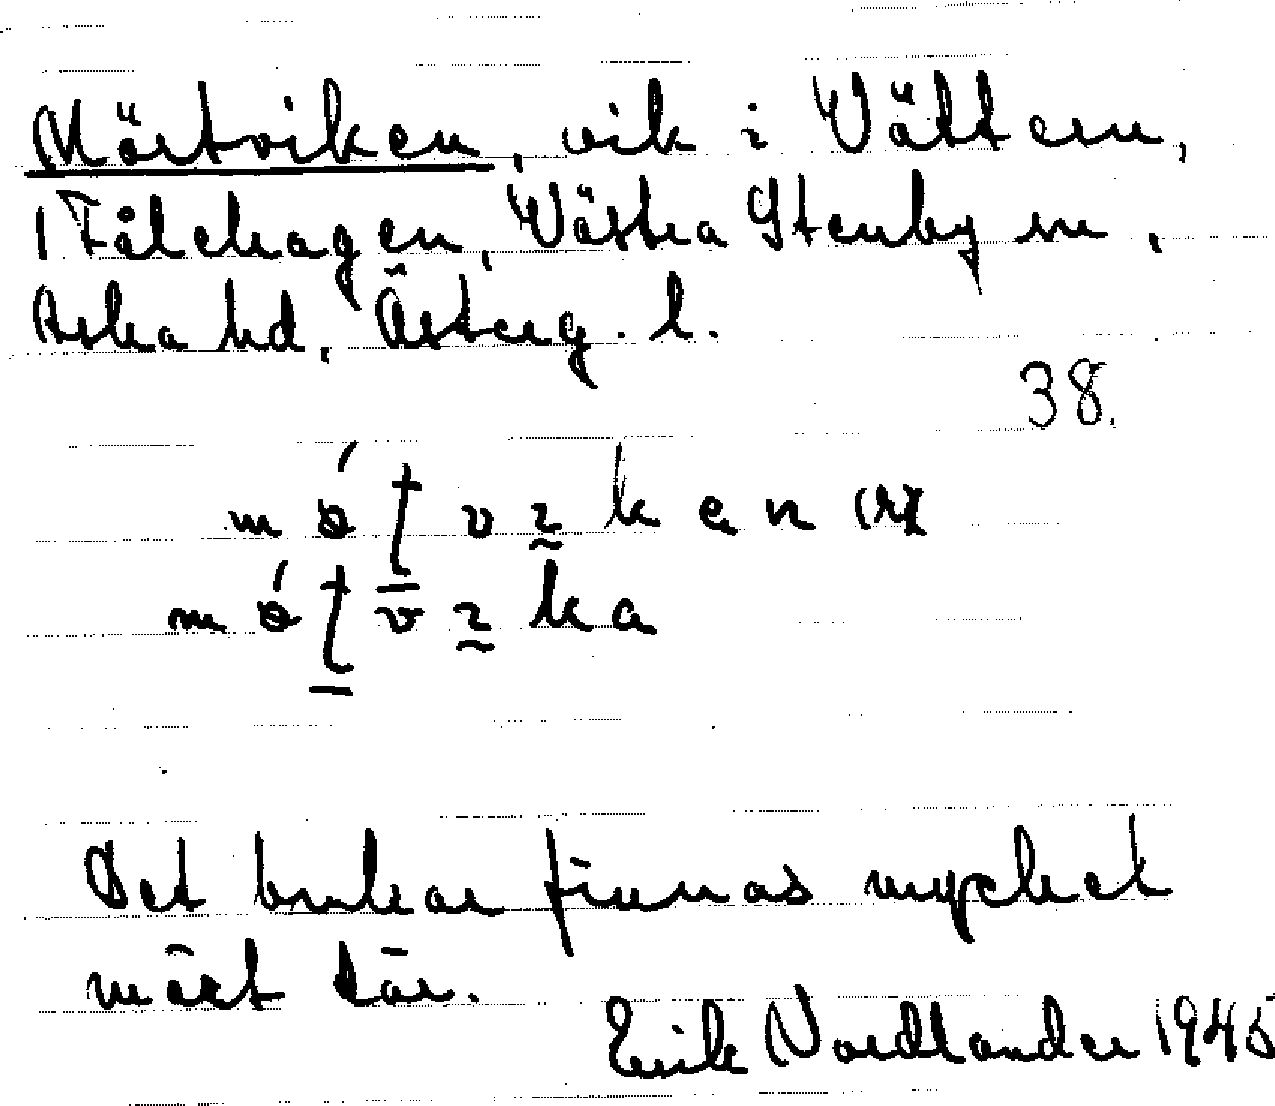 Mörtviken, vik i Vättern,
Fålehagen, Västra Stenby sn,
Aska hd, Österg. l.
38.
Det brukar finnas mycket
mört där.
Erik Nordlander 1945